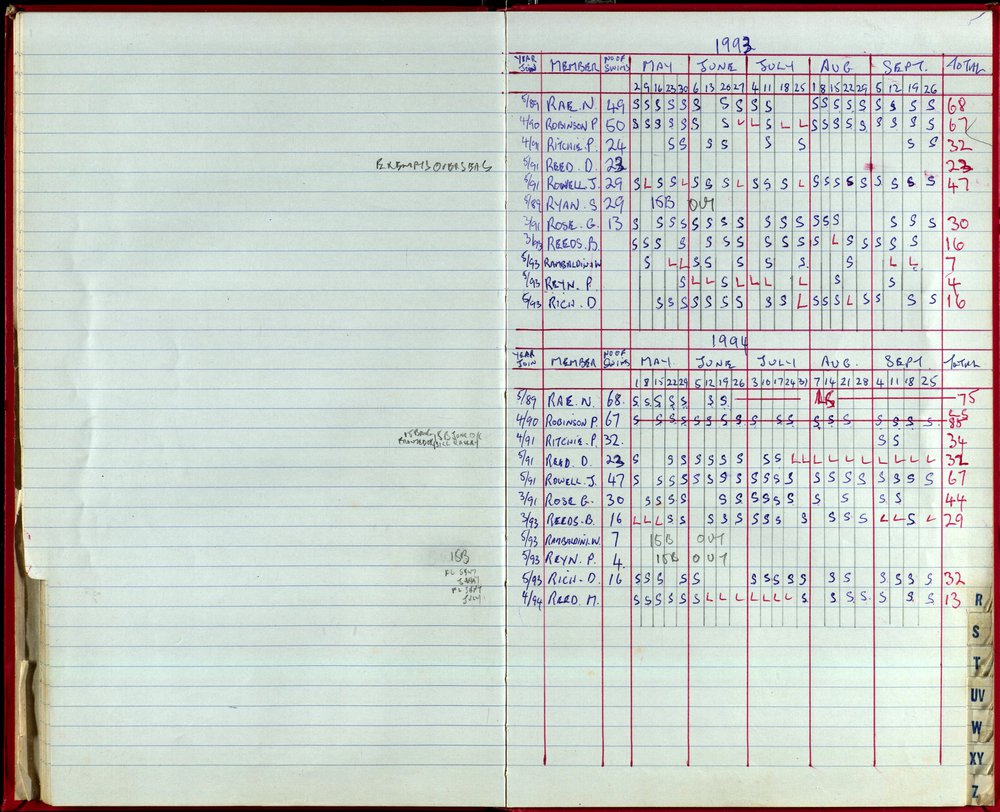 1993
YEAR JOIN MEMBER NO OF SWIMS MAY JUNE JULY AUG SEPT. TOTAL
2 9 16 23 30 6 13 20 27 4 11 18 25 1 8 15 22 29 5 12 19 26
5/89 RAE. N. 49 S S S S S S S S S S S S S S S S S S S S 68
4/90 ROBINSON P. 50 S S S S S S S L L S L L S S S S S S S S S 67
4/91 RITCHIE. P. 24 S S S S S S S S 32
EXEMPT OVERSEAS 5/91 REED. D. 23 23
5/91 ROWELL J. 29 S L S S L S S S L S S S L S S S S S S S S S 47
5/89 RYAN. S 29 15B OUT
3/91 ROSE. G. 13 S S S S S S S S S S S S S S 30
3/93 REEDS. B. S S S S S S S S S S S S L S S S S S 16
5/93 RAMBALDINI W S L L S S S S S S L L 7
5/93 REYN. P S L L S L L L L S S 4
5/93 RICH. D S S S S S S S S S L S S S L S S S S 16
1994
YEAR JOIN MEMBER NO OF SWIMS MAY. JUNE JULY AUG. SEPT TOTAL
1 8 15 22 29 5 12 19 26 3 10 17 24 31 7 14 21 28 4 11 18 25
5/89 RAE. N. 68. S S S S S S S 75
4/90 ROBINSON P. 67 S S S S S S S S S S S S S S S S S S S
4/91 RITCHIE. P. 32. S S 34
5/91 REED. D. 23 S S S S S S S S S L L L L L L L L L L 32
5/91 ROWELL. J. 47 S S S S S S S S S S S S S S S S S S S S 67
3/91 ROSE G. 30 S S S S S S S S S S S S S S 44
3/93 REEDS. B. 16 L L L S S S S S S S S S S S S L L S L 29
5/93 RAMBALDINI. W. 7 15B OUT
15B 5/93 REYN. P. 4. 15B OUT
5/93 RICH. D. 16 S S S S S S S S S S S S S S S S 32
4/94 REED M. S S S S S S L L L L L L L S S S S S S S 13
R
S
T
UV
W
XY
Z